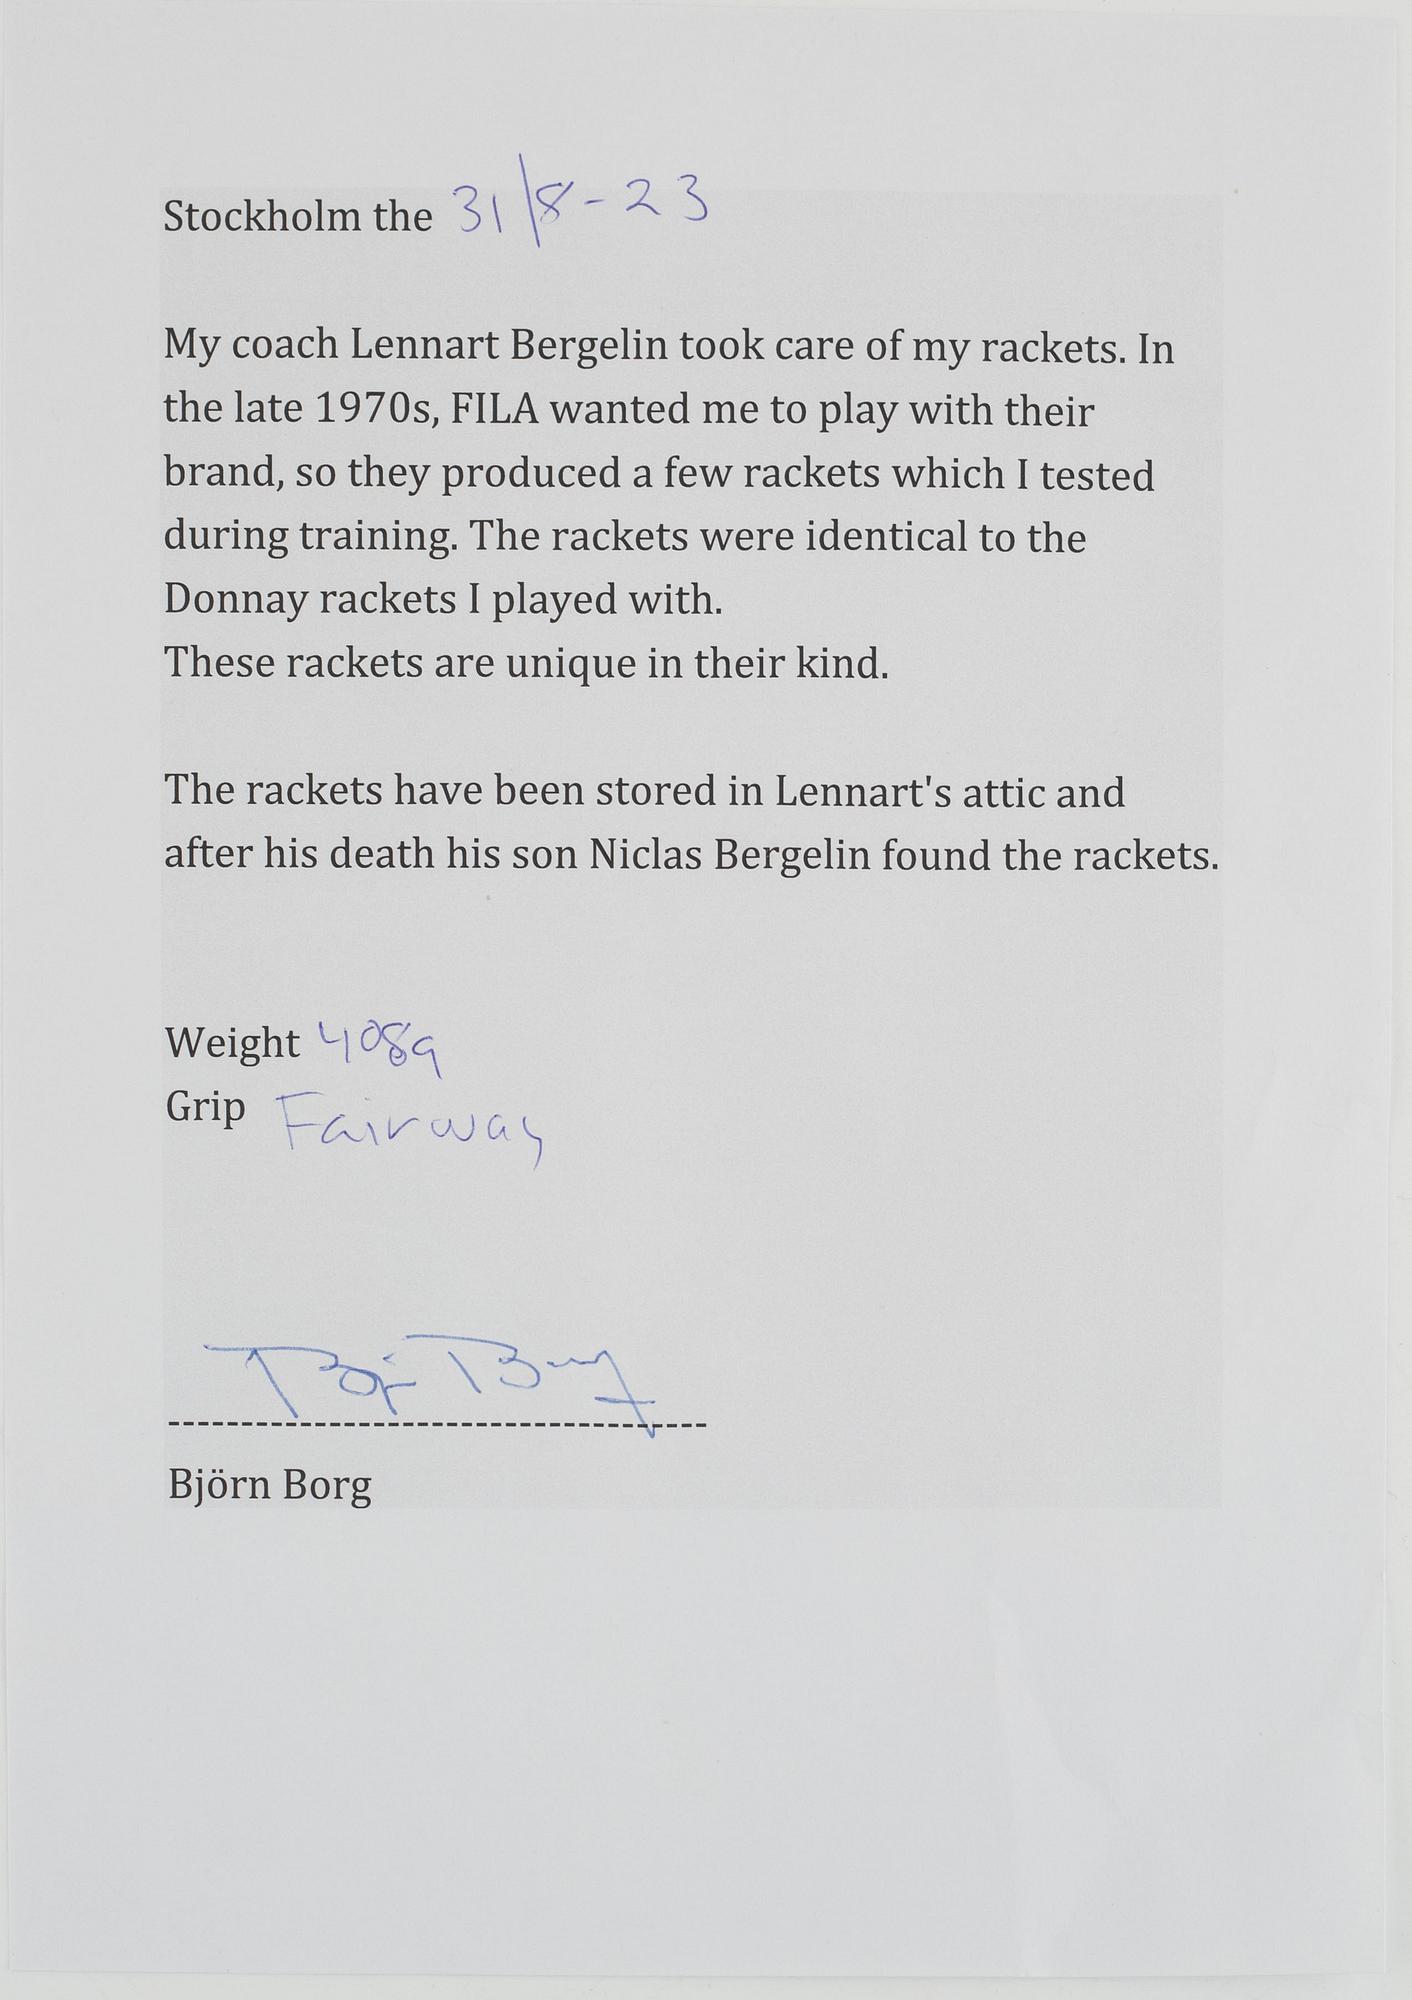 Stockholm the 31/8-23
My coach Lennart Bergelin took care of my rackets. In
the late 1970s, FILA wanted me to play with their
brand, so they produced a few rackets which I tested
during training. The rackets were identical to the
Donnay rackets I played with.
These rackets are unique in their kind.
The rackets have been stored in Lennart's attic and
after his death his son Niclas Bergelin found the rackets.
Weight 408g
Grip Fairway
Björn Borg
Björn Borg